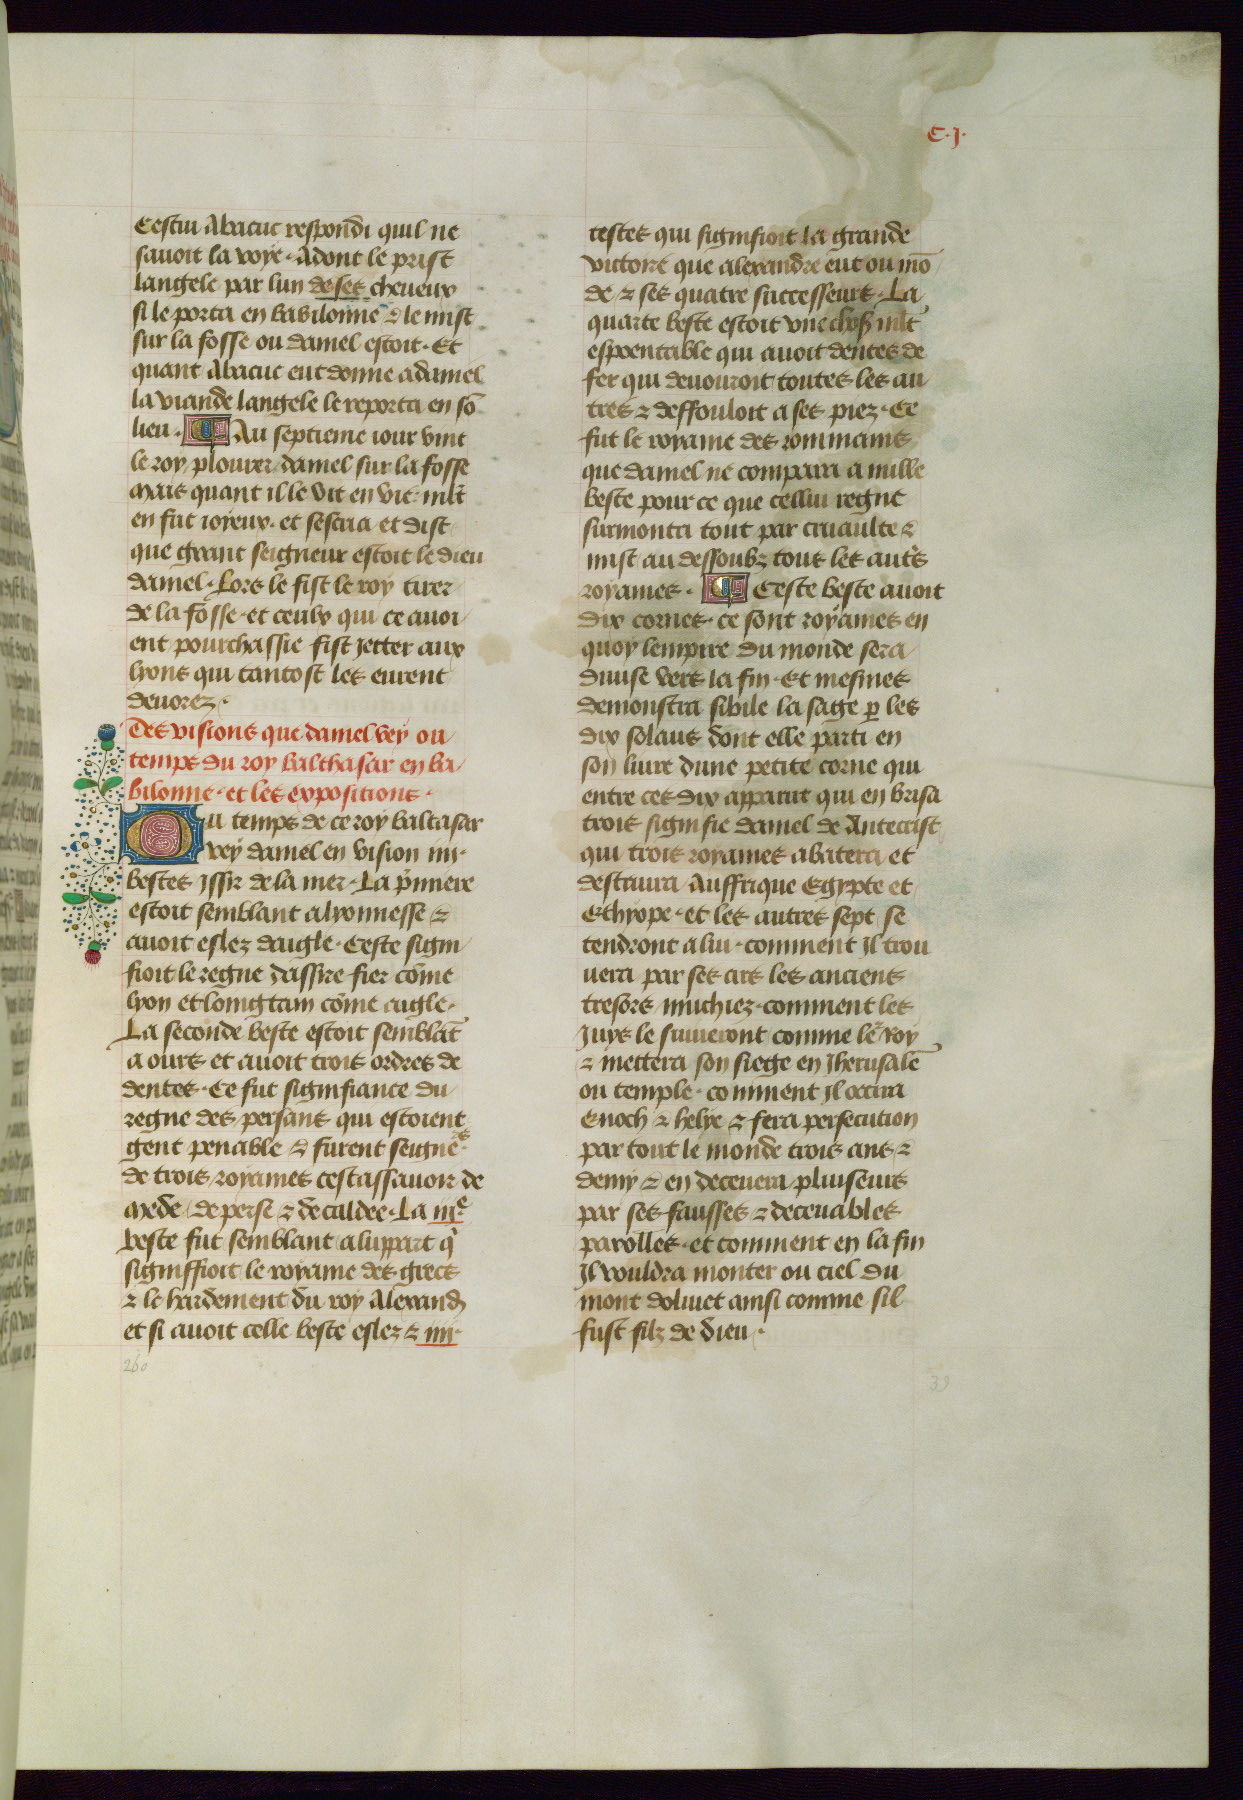 C·J·
Cestui Abacuc respondi quil ne
savoit la voye· Adont le prist
langele par lun de ses cheveux
si le porta en babilonne & le mist
sur la fosse ou daniel estoit· Et
quant Abacuc eut donne a daniel
la viande langele le reporta en sō
lieu· Au septieme iour vint
le roy plourer daniel sur la fosse
Mais quant il le vit en vie· mlt̄
en fut ioyeux· et sescria et dist
que grant seigneur estoit le dieu
daniel· Lors le fist le roy tirer
de la fosse· et ceulx qui ce avoi
ent pourchassie fist Jetter aux
lyons qui tantost les eurent
devorez·
Des visions que daniel vey ou
temps du roy balthasar en ba
bilonne· et les expositions·
Ou temps de ce roy baltasar
vey daniel en vision iiii·
bestes Jssir de la mer· La p̄miere
estoit semblant a lyonnesse &
avoit eslez daigle· Ceste signi
fioit le regne dassire fier cōme
lyon et loingtain cōme aigle·
La seconde beste estoit semblāt
a ours et avoit trois ordres de
dentes· Ce fut signifiance du
regne des persans qui estoient
gent penable & furent seignēs
de trois royames cestassavoir de
Mede de perse & de caldee· La iiie
beste fut semblant a luppart q̄
signiffioit le royame des grecs
& le hardement du roy Alexand
et si avoit celle beste eslez & iiii·
260
testes qui signifioit la grande
victore que alexandre eut ou mō
de & ses quatre successeurs· La
quarte beste estoit une chose mlt̄
espoentable qui avoit dentes de
fer qui devouroit toutes les au
tres & deffouloit a ses piez· Ce
fut le royame des rommains
que daniel ne compara a nulle
beste pour ce que cellui regne
surmonta tout par cruaulte &
mist au dessoubz tous les aut̄s
royames· Ceste beste avoit
dix cornes· ce sont royames en
quoy lempire du monde sera
divise vers la fin· Et mesmes
demonstra sibile la sage p̱ les
dix solaus dont elle parti en
son livre dune petite corne qui
entre ces dix apparut qui en brisa
trois signifie daniel de Antecrist
qui trois royames abatera et
destruira Auffrique Egypte et
Ethyope· et les autres sept se
tendront a lui· comment Jl trou
vera par ses ars les anciens
tresors muchiez· comment les
Juys le suiveront comme le roy
& mettera son siege en Jherusalē
ou temple· comment Jl occira
Enoch & helye & fera persecution
par tout le monde trois ans &
demy & en decevera pluiseurs
par ses fausses & decevables
parolles· et comment en la fin
Jl vouldra monter ou ciel du
mont dolivet ainsi comme sil
fust filz de dieu·
39